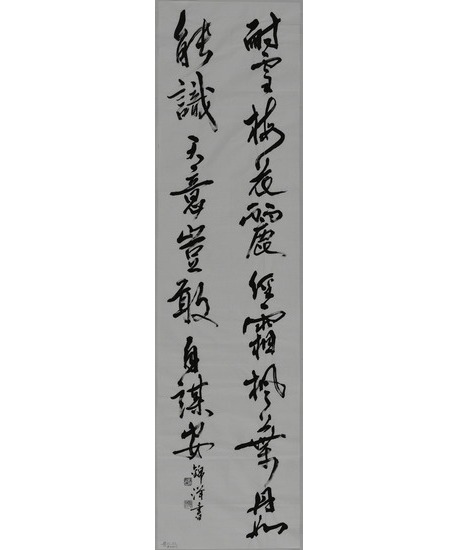 耐雪梅花麗經霜楓葉丹如
能識天意豈敢自謀安
錦洋書